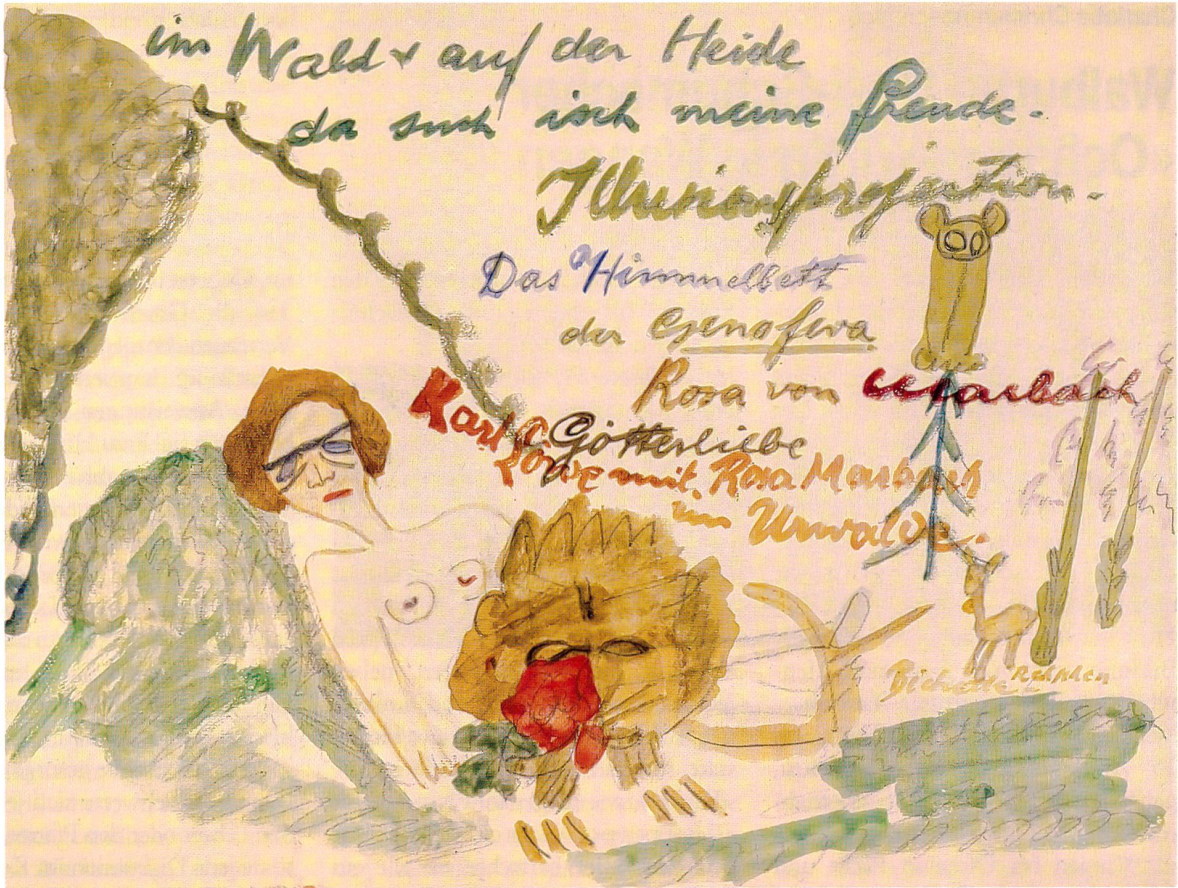 im Wald + auf der Heide
da such isch meine freude.
Illusionsprojection.
Das Himmelbett
der Genofeva
Rosa von Marbach
Götterliebe
Karl Löwe mit Rosa Marbach
im Urwalde.